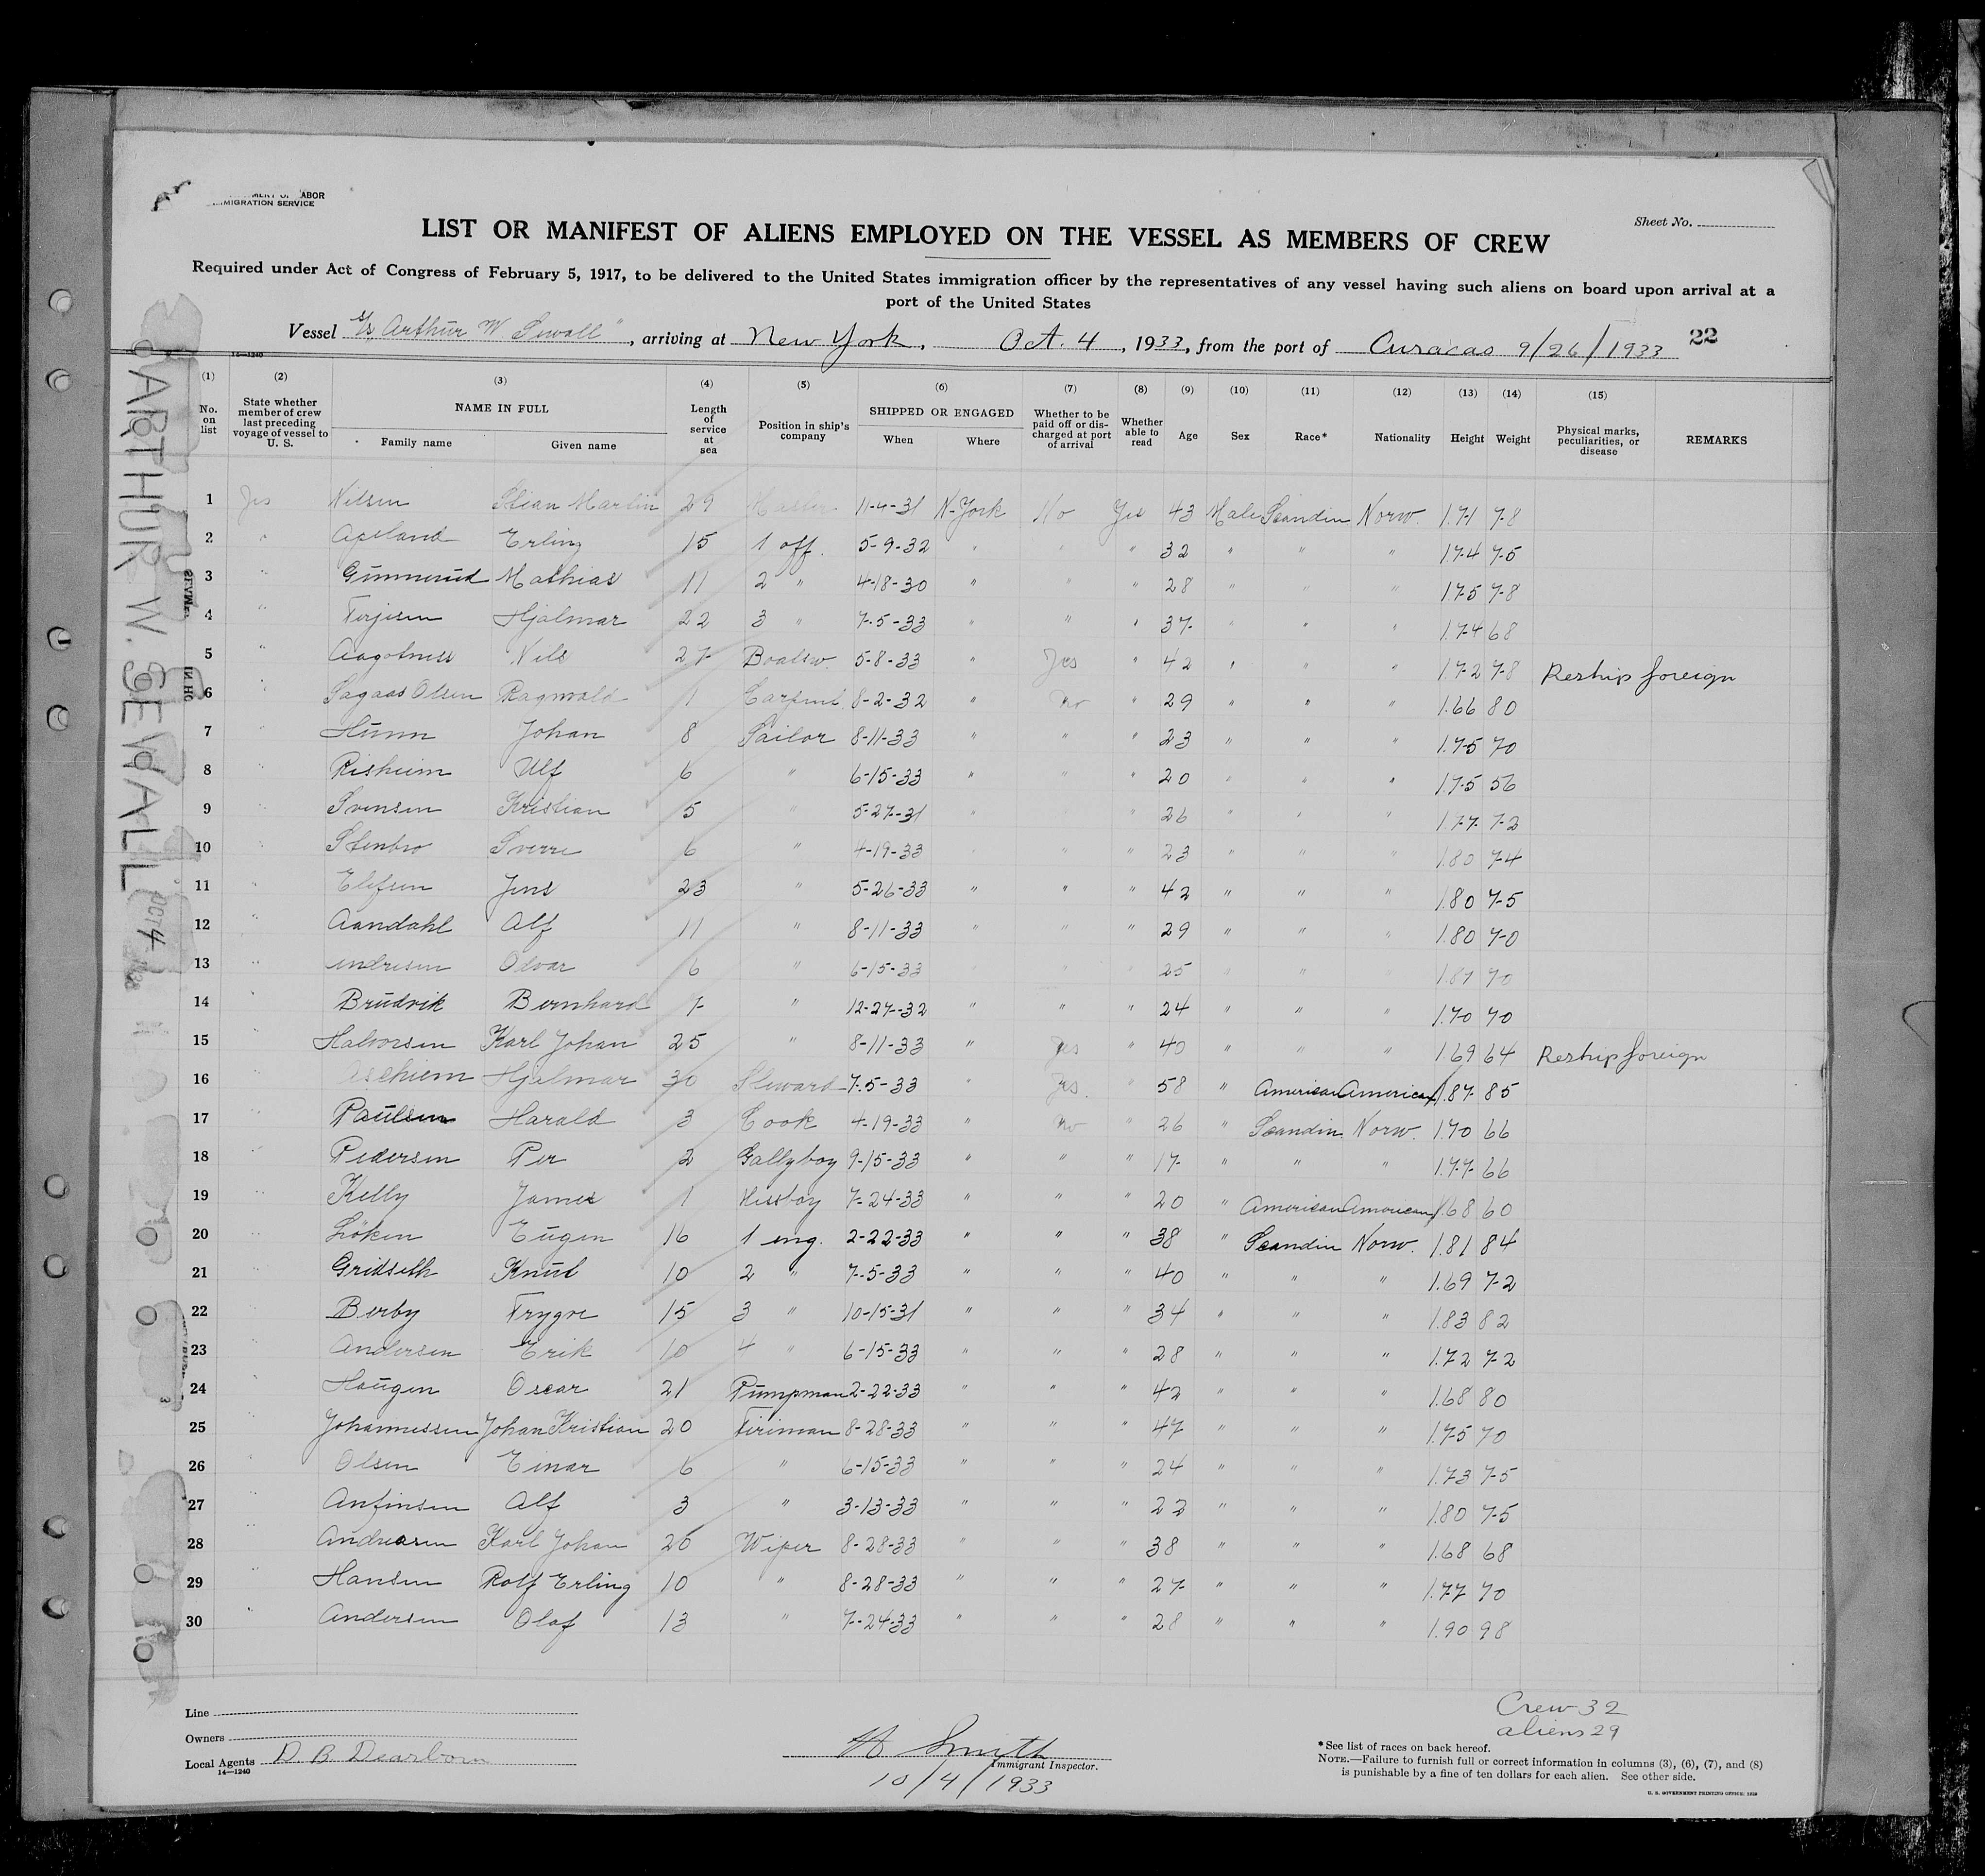 ABOR
MIGRATION SERVICE
Sheet No.
LIST OR MANIFEST OF ALIENS EMPLOYED ON THE VESSEL AS MEMBERS OF CREW
Required under Act of Congress of February 5, 1917, to be delivered to the United States immigration officer by the representatives of any vessel having such aliens on board upon arrival at a
port of the United States
Vessel S/S Arthur W Sewall", arriving at New York, Oct. 4, 1933, from the port of Curacao 9/26/1933 22
14—1240
ARTHUR W. SEWALL OCT 4
(1) No. on list
(2) State whether member of crew last preceding voyage of vessel to U. S.
(3) NAME IN FULL Family name Given name
(4) Length of service at sea
(5) Position in ship's company
(6) SHIPPED OR ENGAGED When Where
(7) Whether to be paid off or discharged at port of arrival
(8) Whether able to read
(9) Age
(10) Sex
(11) Race*
(12) Nationality
(13) Height
(14) Weight
(15) Physical marks, peculiarities, or disease
REMARKS
1 Yes Nilsen Stian Martin 29 Master 11-4-31 N-York No Yes 43 Male Scandin Norw. 1.71 78
2 " Apeland Erling 15 1 off. 5-9-32 " " " 32 " " " 1.74 75
3 " Gunnerud Mathias 11 2 " 4-18-30 " " " 28 " " " 1.75 78
4 " Terjesen Hjalmar 22 3 " 7-5-33 " " " 37 " " " 1.74 68
5 " Aagotness Nils 27 Boatsw. 5-8-33 " Yes " 42 " " " 1.72 78 Reship foreign
6 " Sagaas Olsen Ragnvald 1 Carpent. 8-2-32 " no " 29 " " " 1.66 80
7 " Hunn Johan 8 Sailor 8-11-33 " " " 23 " " " 1.75 70
8 " Risheim Ulf 6 " 6-15-33 " " " 20 " " " 1.75 56
9 " Svensen Kristian 5 " 5-27-31 " " " 26 " " " 1.77 72
10 " Stenbro Sverre 6 " 4-19-33 " " " 23 " " " 1.80 74
11 " Elefsen Jens 23 " 5-26-33 " " " 42 " " " 1.80 75
12 " Aandahl Alf 11 " 8-11-33 " " " 29 " " " 1.80 70
13 " Andresen Odvar 6 " 6-15-33 " " " 25 " " " 1.81 70
14 " Brudvik Bernhard 7 " 12-27-32 " " " 24 " " " 1.70 70
15 " Halvorsen Karl Johan 25 " 8-11-33 " Yes " 40 " " " 1.69 64 Reship foreign
16 " Hjalmar 30 Steward 7-5-33 " Yes. " 58 " American American 1.87 85
17 " Paulsen Harald 3 Cook 4-19-33 " no " 26 " Scandin Norw. 1.70 66
18 " Pedersen Per 2 Gallyboy 9-15-33 " " " 17 " " " 1.77 66
19 " Kelly James 1 Messboy 7-24-33 " " " 20 " American American 1.68 60
20 " Löken Eugen 16 1 eng. 2-22-33 " " " 38 " Scandin Norw. 1.81 84
21 " Gridseth Knut 10 2 " 7-5-33 " " " 40 " " " 1.69 72
22 " Berby Trygve 15 3 " 10-15-31 " " " 34 " " " 1.83 82
23 " Andersen Erik 10 4 " 6-15-33 " " " 28 " " " 1.72 72
24 " Haugen Oscar 21 Pumpman 2-22-33 " " " 42 " " " 1.68 80
25 " Johannessen Johan Kristian 20 Fireman 8-28-33 " " " 47 " " " 1.75 70
26 " Olsen Einar 6 " 6-15-33 " " " 24 " " " 1.73 75
27 " Anfinsen Alf 3 " 3-13-33 " " " 22 " " " 1.80 75
28 " Andreasen Karl Johan 20 Wiper 8-28-33 " " " 38 " " " 1.68 68
29 " Hansen Rolf Erling 10 " 8-28-33 " " " 27 " " " 1.77 70
30 " Andersen Olaf 13 " 7-24-33 " " " 28 " " " 1.90 98
Crew 32
aliens 29
Line
Owners
Local Agents D. B. Dearborn
14—1240
H Smith
Immigrant Inspector.
10/4/1933
*See list of races on back hereof.
NOTE.—Failure to furnish full or correct information in columns (3), (6), (7), and (8)
is punishable by a fine of ten dollars for each alien. See other side.
U. S. GOVERNMENT PRINTING OFFICE: